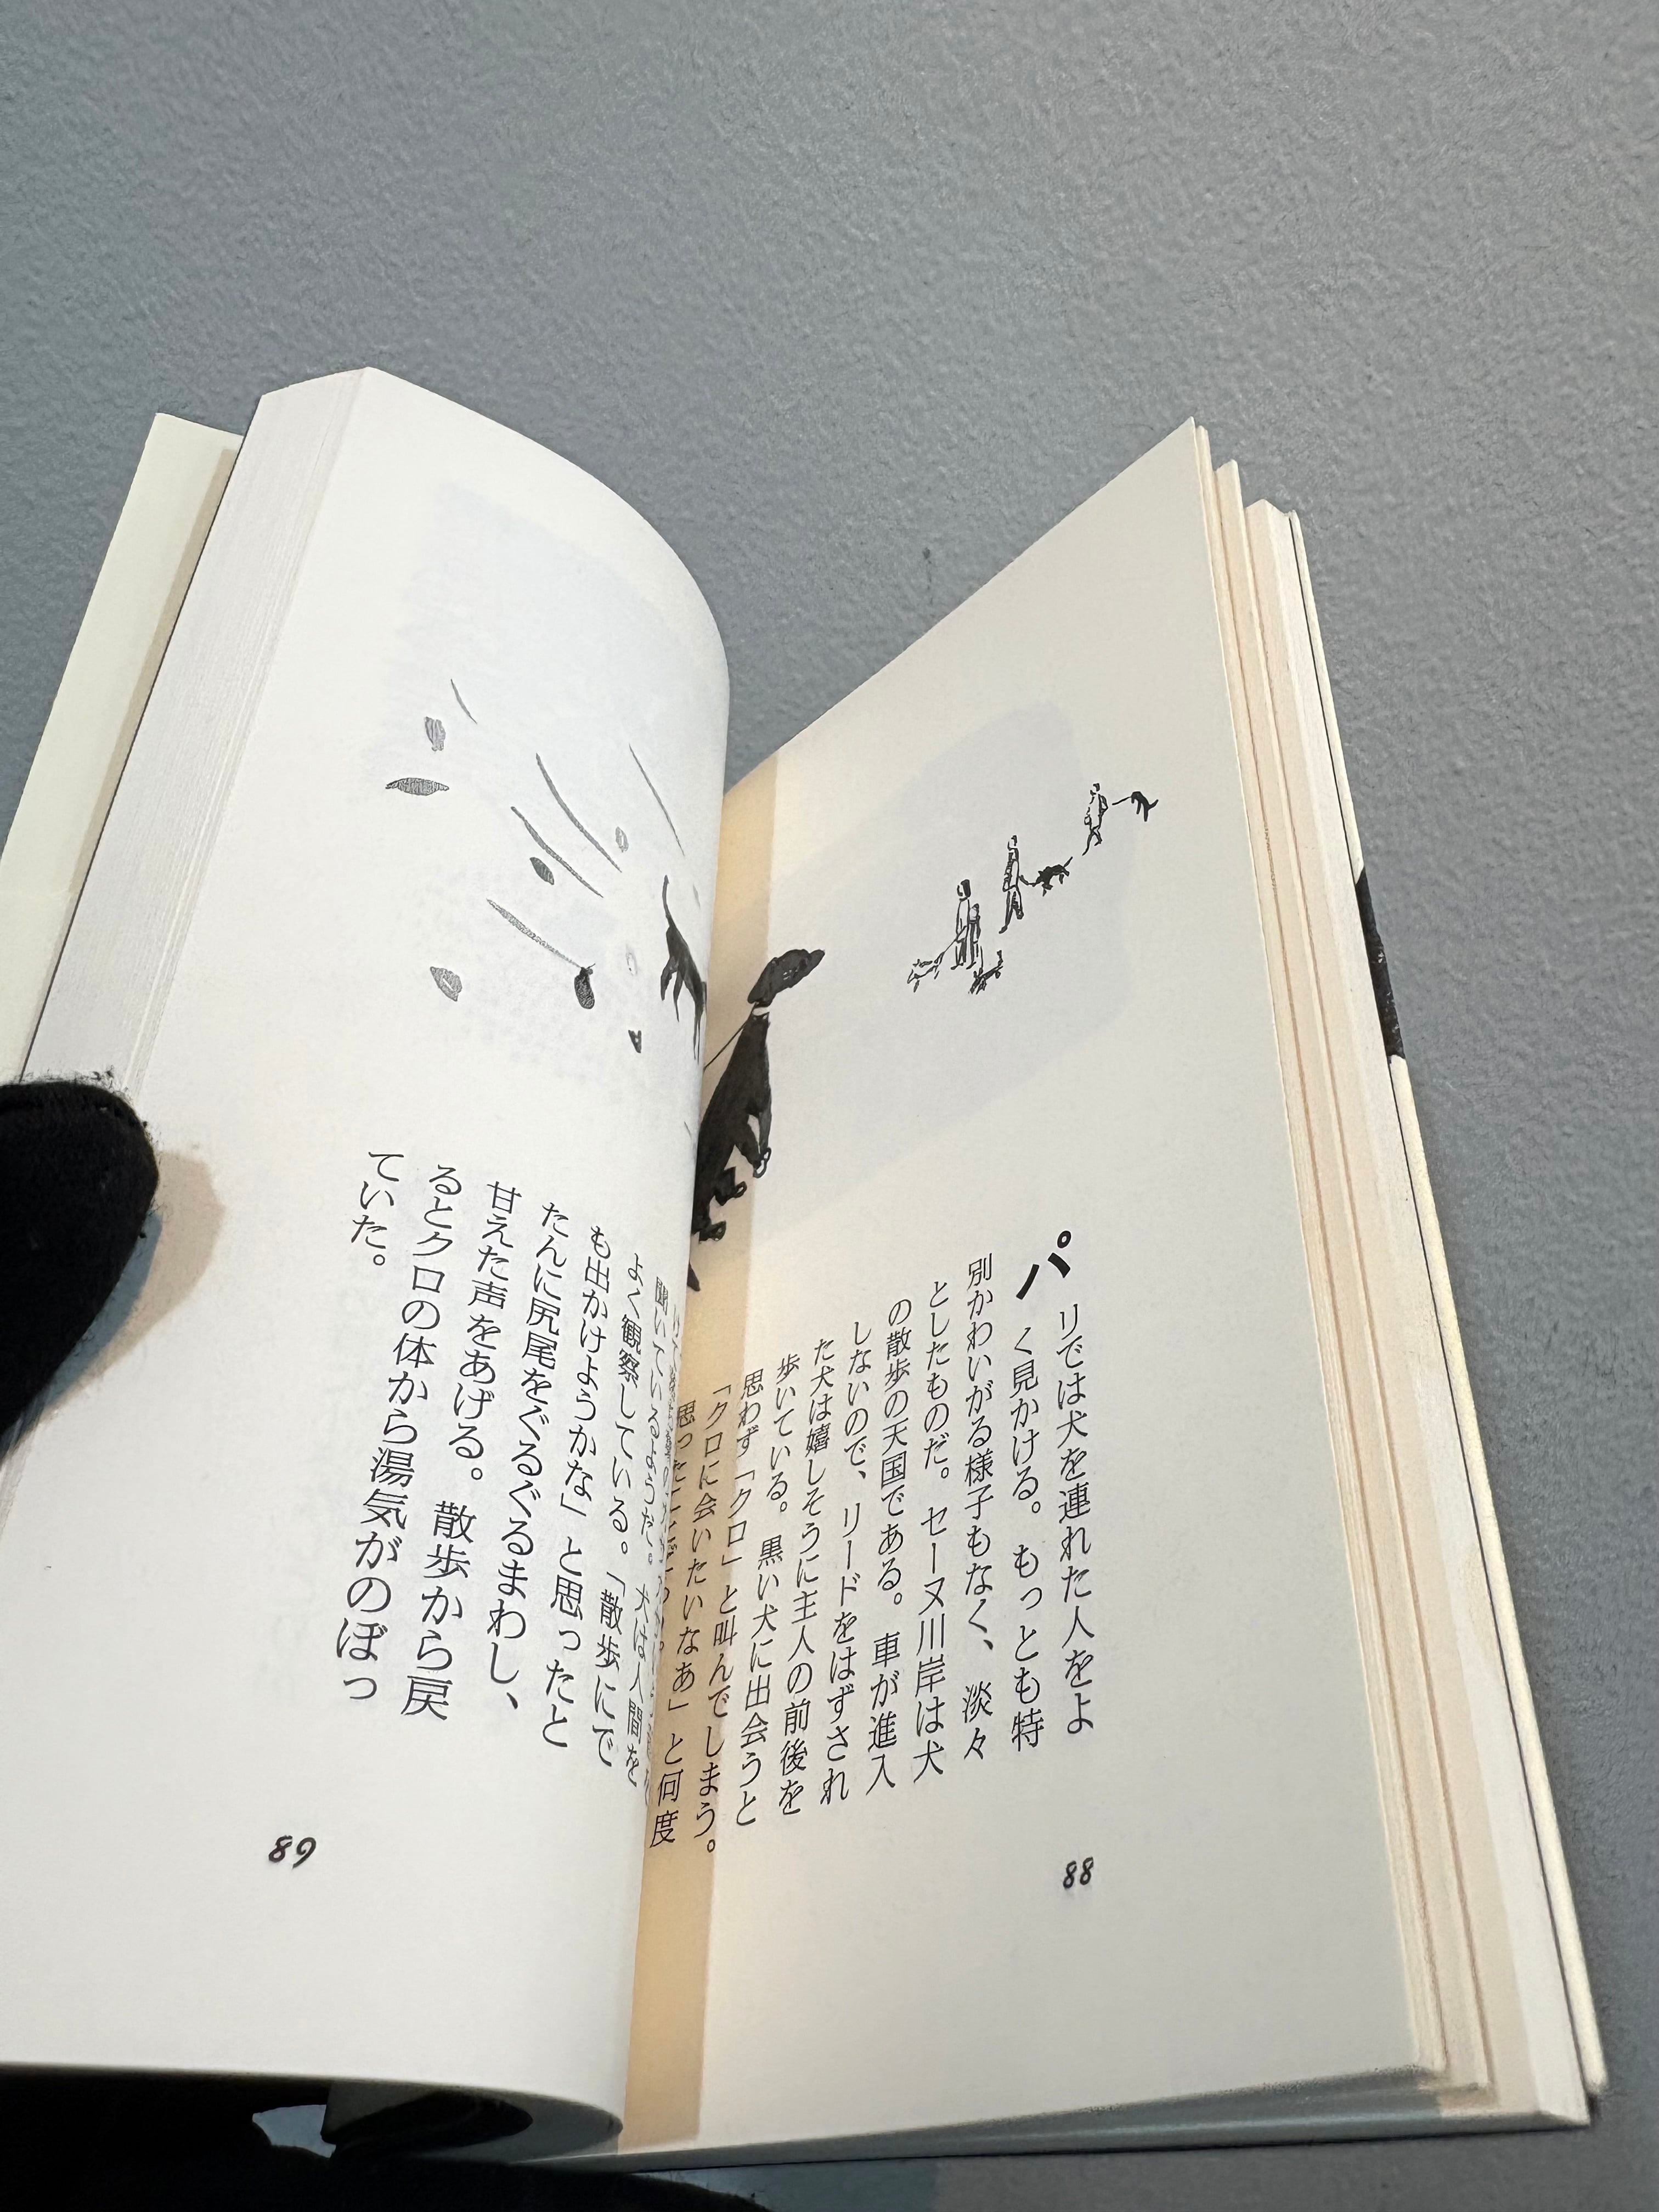 パリでは犬を連れた人をよ
く見かける。もっとも特
別かわいがる様子もなく、淡々
としたものだ。セーヌ川岸は犬
の散歩の天国である。車が進入
しないので、リードをはずされ
た犬は嬉しそうに主人の前後を
歩いている。黒い犬に出会うと
思わず「クロ」と叫んでしまう。
「クロに会いたいなあ」と何度
思ったことだろうか。
聞いているようだ。犬は人間を
よく観察している。「散歩にで
も出かけようかな」と思ったと
たんに尻尾をぐるぐるまわし、
甘えた声をあげる。散歩から戻
るとクロの体から湯気がのぼっ
ていた。
88
89